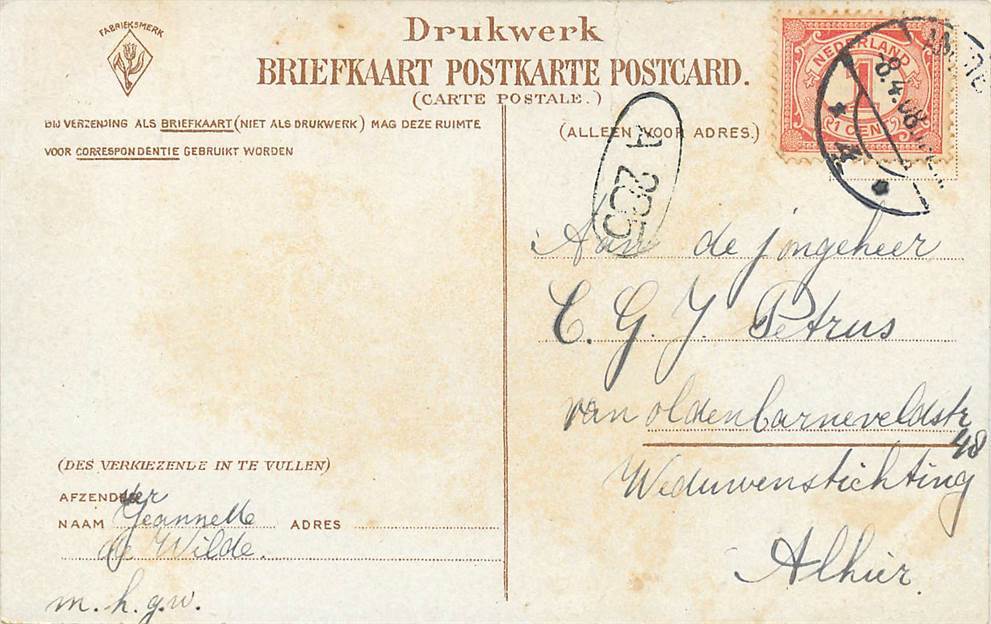 FABRIEKSMERK
Drukwerk
BRIEFKAART POSTKARTE POSTCARD.
(CARTE POSTALE.)
BIJ VERZENDING ALS BRIEFKAART (NIET ALS DRUKWERK) MAG DEZE RUIMTE
VOOR CORRESPONDENTIE GEBRUIKT WORDEN
(ALLEEN VOOR ADRES.)
NEDERLAND
1
1 CENT
8.4.08
4
A 285
Aan de jongeheer
C. G. J. Petrus
van oldenbarneveldstr
48
Weduwenstichting
Alhier.
(DES VERKIEZENDE IN TE VULLEN)
AFZENDER
NAAM Jeannette ADRES
de Wilde.
m. h. g. w.